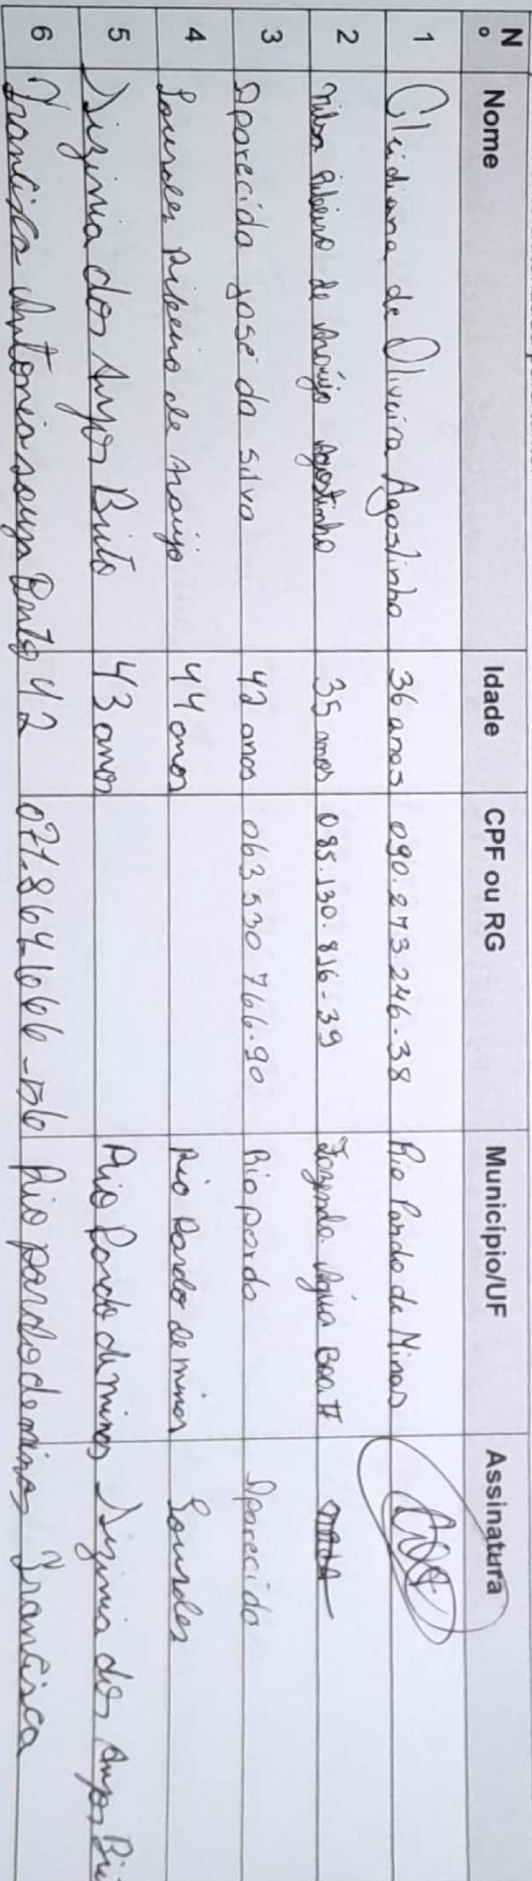 Nº Nome Idade CPF ou RG Município/UF Assinatura
1 Cleidiana de Oliveira Agostinho 36 anos 090.273246-38 Rio Pardo de Minas
2 Nilza Ribeiro de Araújo Agostinho 35 anos 085.130.816-39 Fazenda Água Boa II
3 Aparecida José da Silva 42 anos 063 530 766-90 Rio pardo Aparecida
4 Lourdes Ribeiro de Araujo 44 anos Rio Pardo de minas Lourdes
5 dos Anjos Brito 43 anos Rio Pardo de minas dos Anjos
6 Francisca Antonia souza Brito 42 Rio pardo de minas Francisca